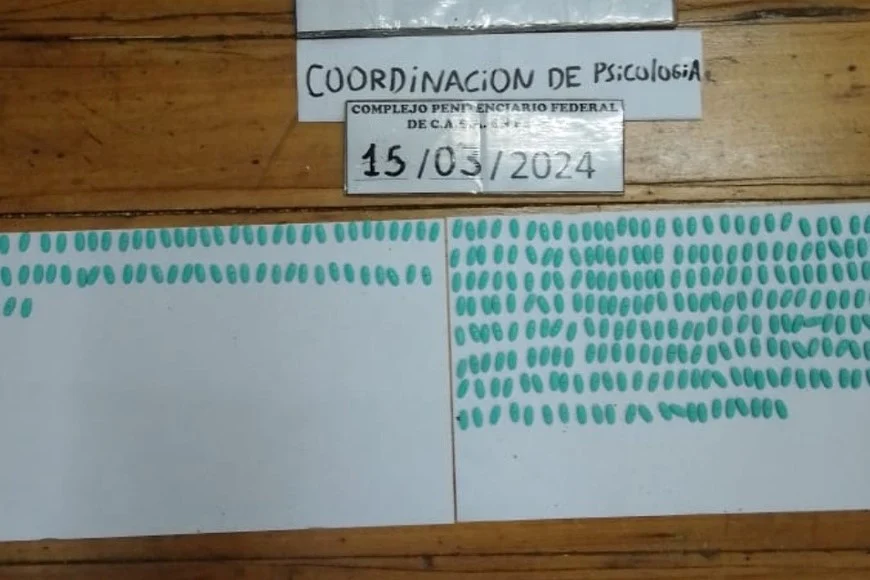 COORDINACION DE PSICOLOGIA
COMPLEJO PENITENCIARIO FEDERAL
DE C.A.B.A.
15/03/2024